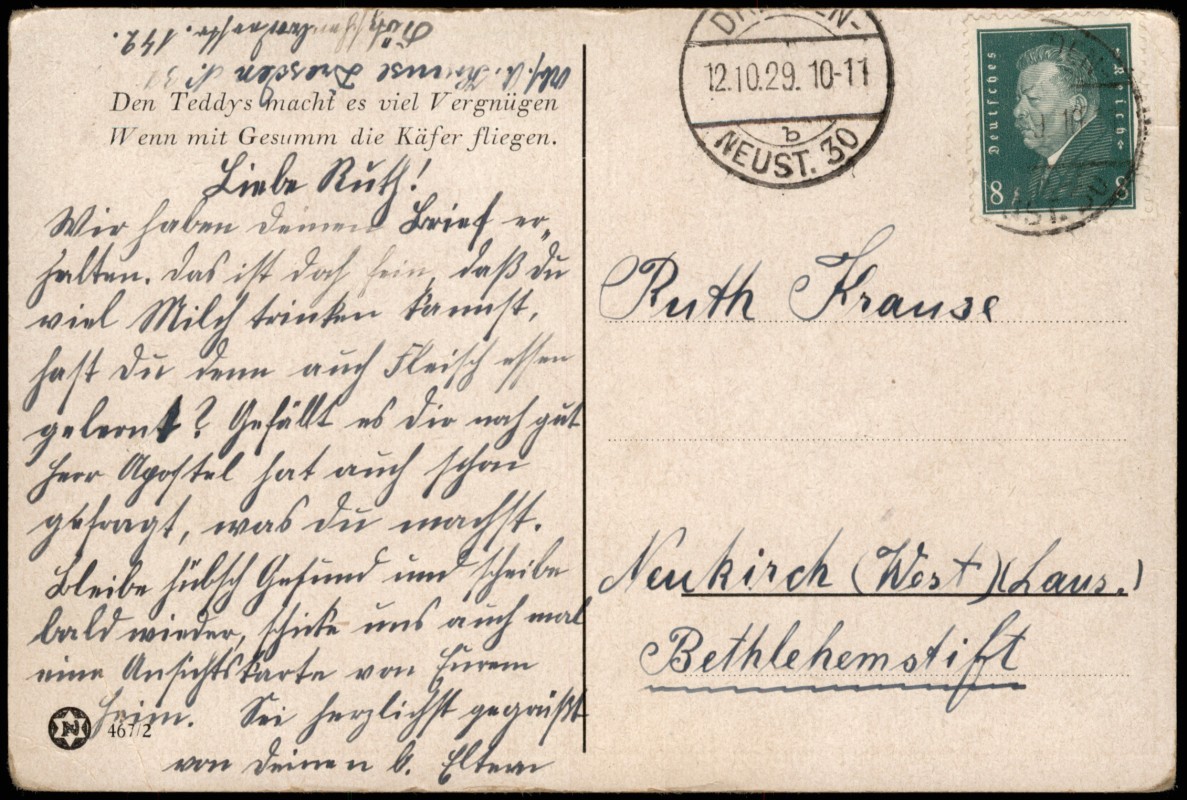 Abs. A. Krause Dresden N. 31
147.
Den Teddys macht es viel Vergnügen
Wenn mit Gesumm die Käfer fliegen.
Liebe Ruth!
Wir haben deinen Brief er-
halten. Das ist doch fein, daß du
viel Milch trinken kannst,
hast du denn auch Fleisch essen
gelernt? Gefällt es dir noch gut
Herr Apostel hat auch schon
gefragt, was du machst.
Bleibe hübsch Gesund und schreibe
bald wieder, schicke uns auch mal
eine Ansichtskarte von Eurem
Heim. Sei herzlichst gegrüßt
von deinen l. Eltern
N
467/2
DRESDEN-
12.10.29. 10-11
b
NEUST. 30
Deutsches Reich
8 8
Ruth Krause
Neukirch (West) (Laus.)
Bethlehemstift